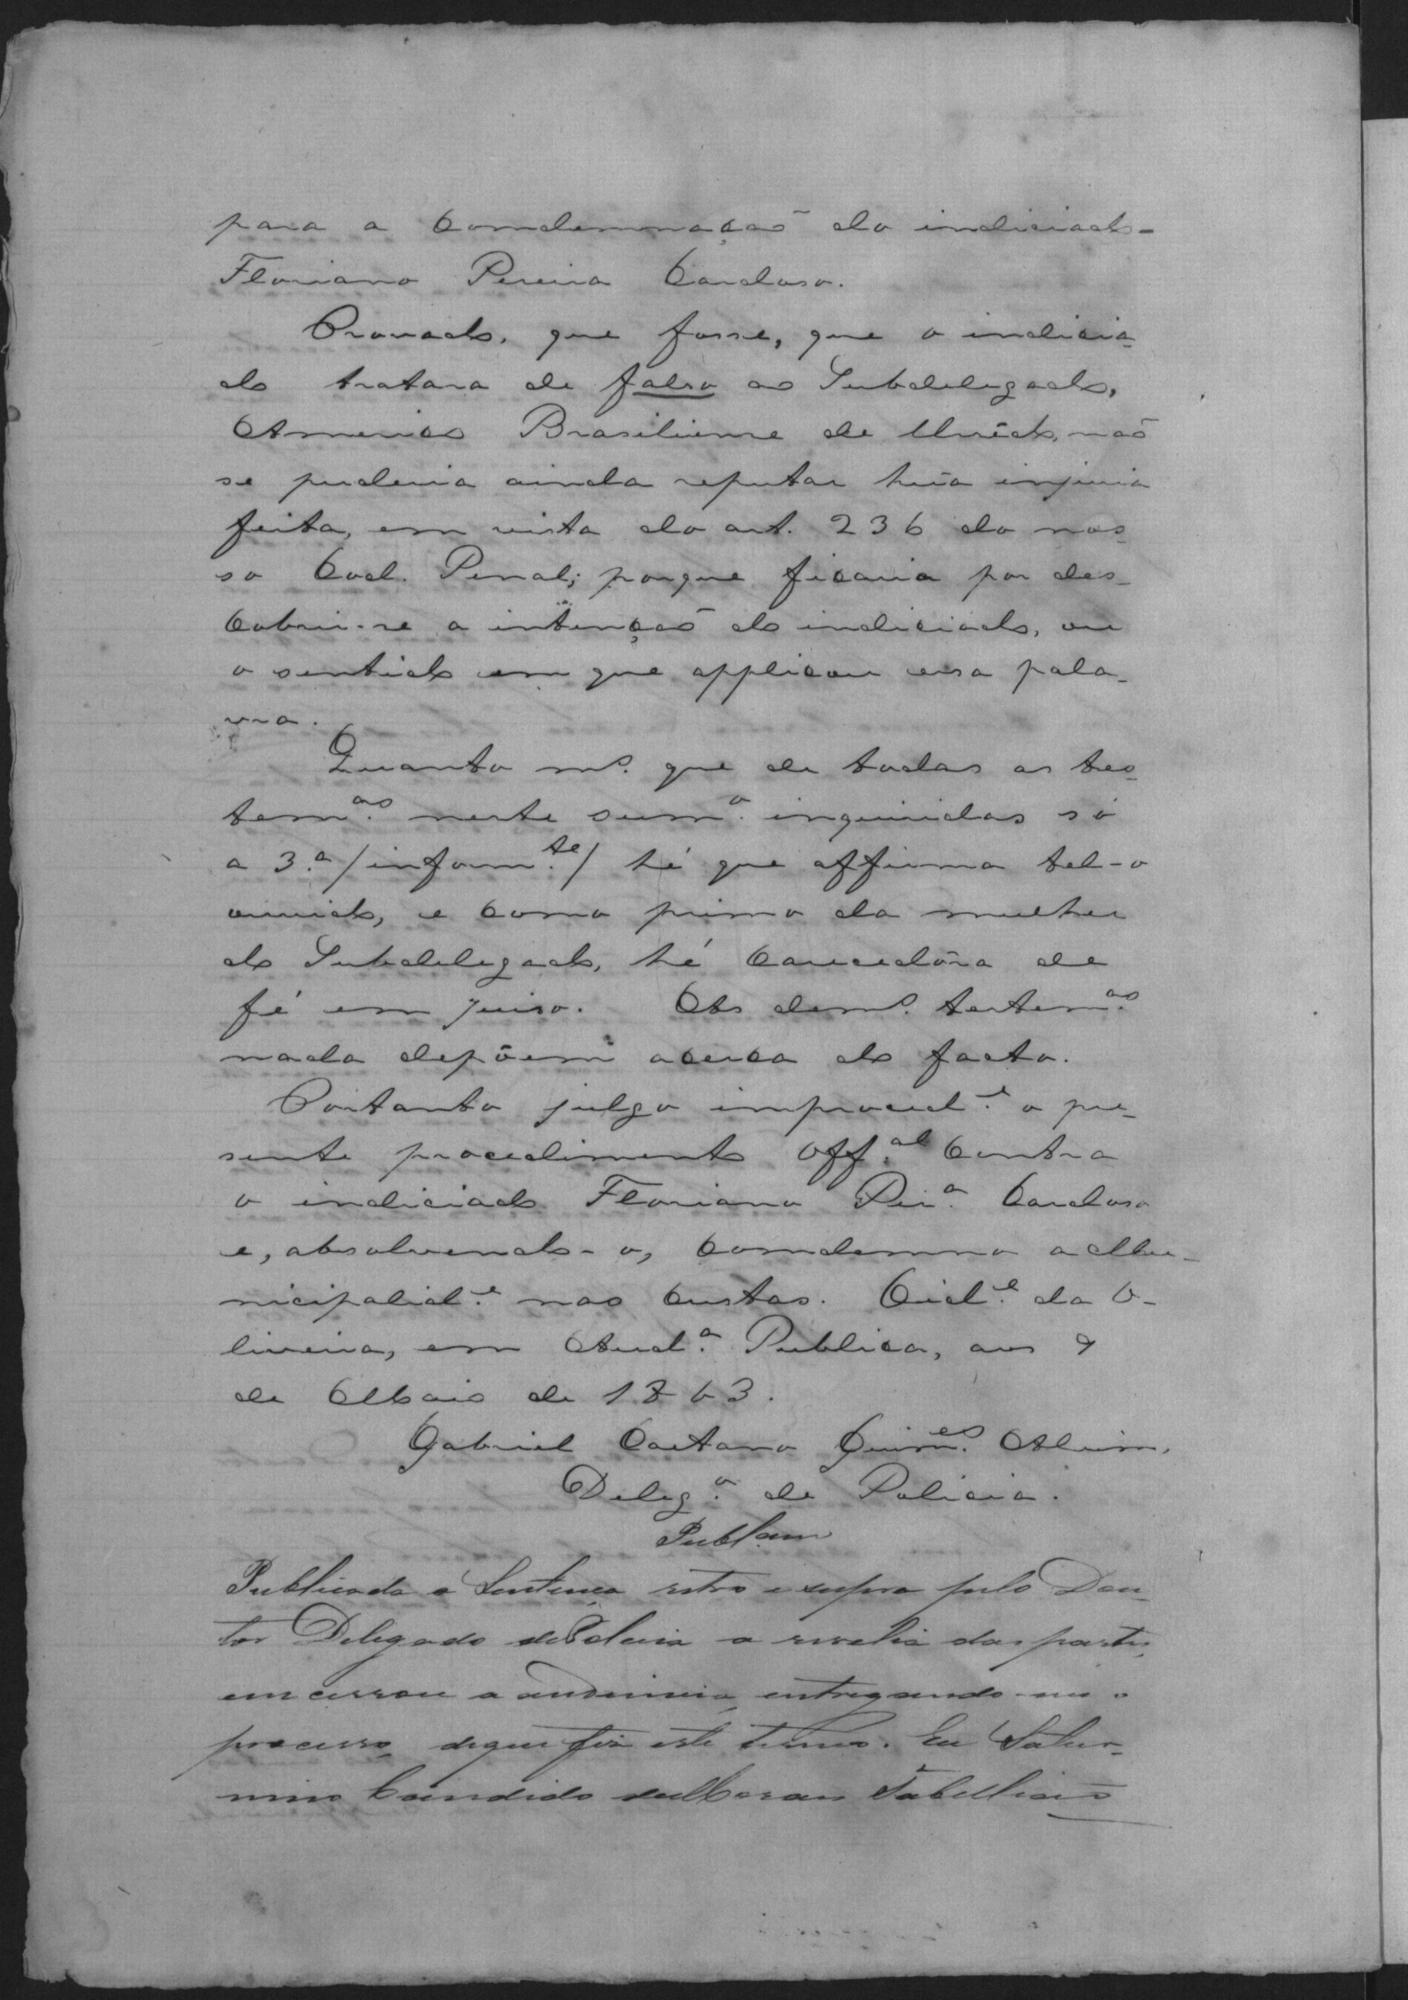 para a Comdemnação do indiciado-
Floriano Pereira Cardoso.
Provado, que fosse, que o indicia-
do tratara de falso ao Subdelegado,
Americo Brasiliense de não
se puderia ainda reputar hũa injuria
feita, em vista do art. 236 do nos-
so Cod. Penal; porque ficaria por des-
cobrir-se a intenção do indiciado, ou
o sentido em que applicou essa pala-
vra.
Quanto m.s que de todas as tes-
tem.as neste sum.o inquiridas só
a 3.a /inform.te/ hé que affirma tel-o
ouvido, e como primo da mulher
do Subdelegado, hé carecedôra de
fé em juiso. As dem.s testem.as
nada depõem acerca do facto.
Portanto julgo improced.e o pre-
sente procedimento Off.al Contra
o indiciado Floriano Per.a Cardoso
e, absolvendo-o, comdemno a Mu-
nicipalid.e nas custas. Cid.e da O-
liveira, em Aud.a Publica, aos
de Maio de 1863.
Gabriel Caetano Guim.es Alvim.
Deleg.o de Policia.
Publ.am
Publicada a Sentença retro e supra pelo Dou-
tor Delegado de Policia a revelia das partes,
encerrou a audiencia, entregando-me o
processo, de que fiz este termo. Eu Satur-
nino Candido de Moraes Tabellião